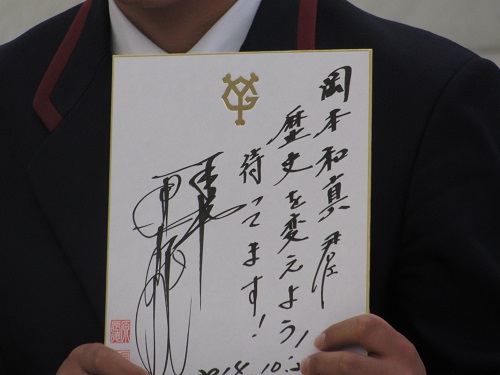 岡本和真君江
歴史を変えよう!
待ってます!
2014.10.2
YG